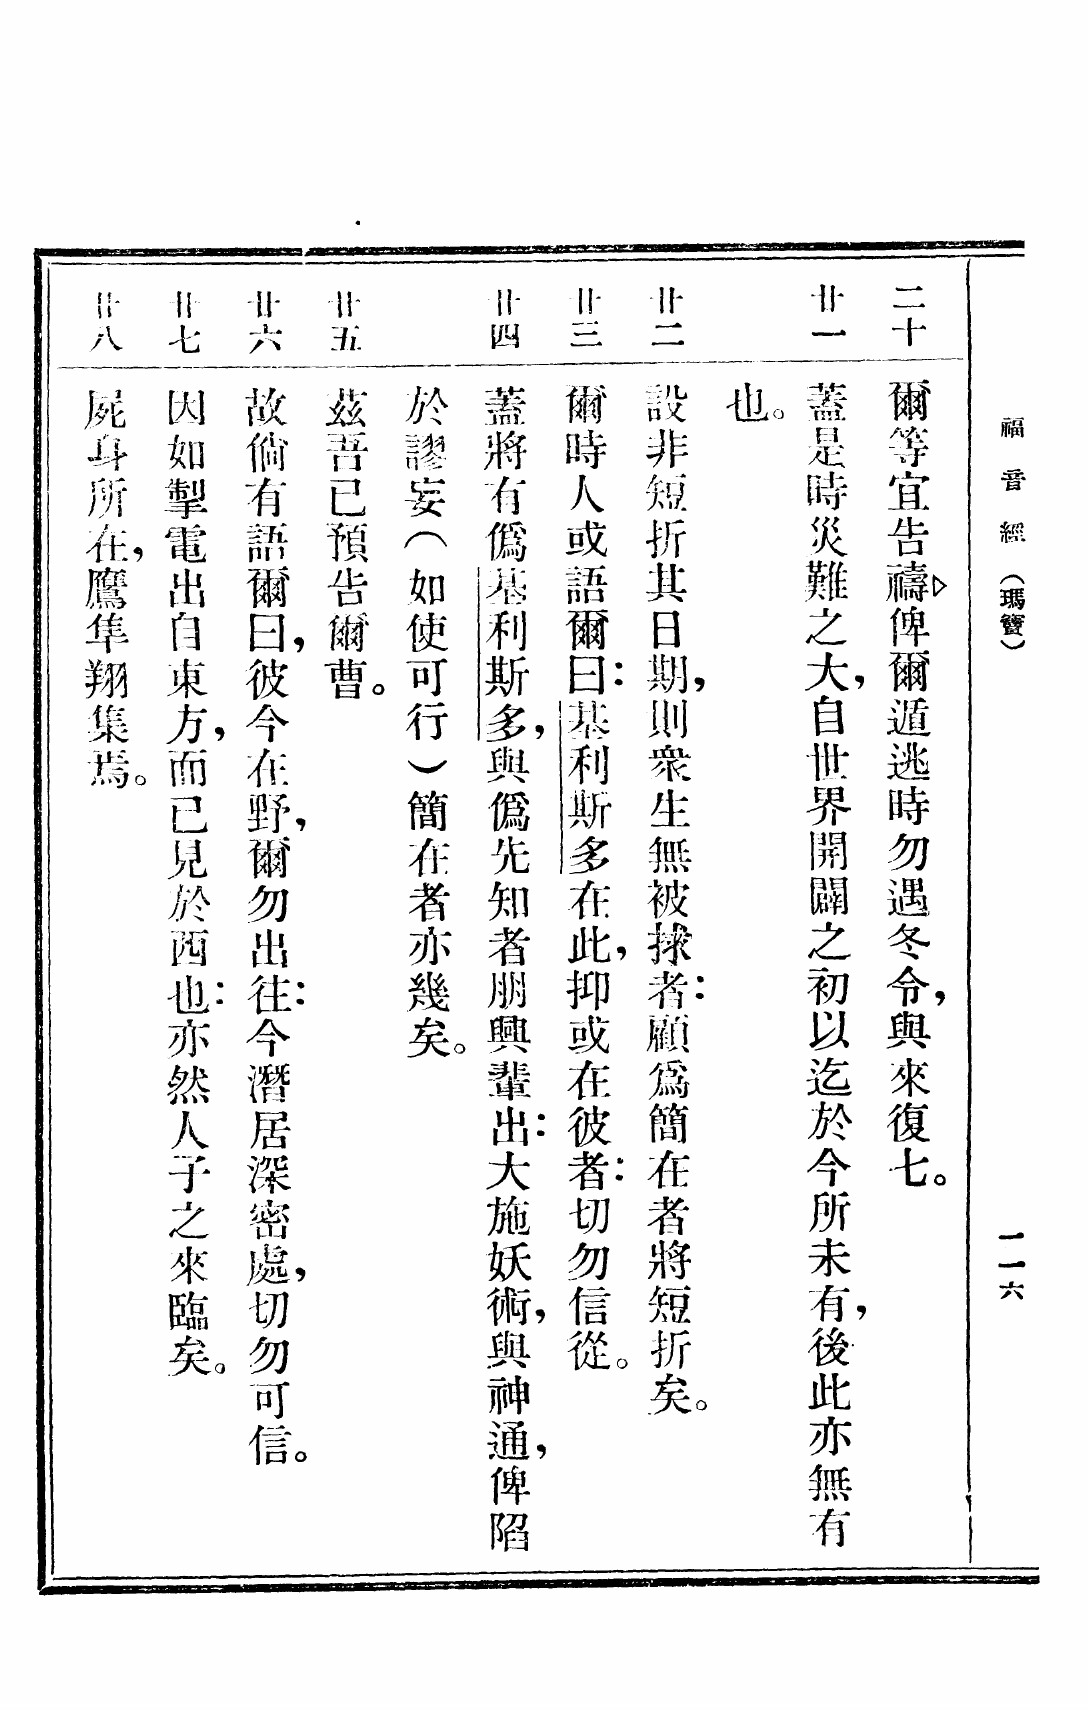 福音經（瑪竇）
一一六
二十
爾等宜告禱▷俾爾遁逃時勿遇冬令，與來復七。
廿一
蓋是時災難之大，自世界開闢之初以迄於今所未有，後此亦無有
也。
廿二
設非短折其日期，則衆生無被捄者：顧爲簡在者將短折矣。
廿三
爾時人或語爾曰：基利斯多在此，抑或在彼者：切勿信從。
廿四
蓋將有僞基利斯多，與僞先知者朋興輩出：大施妖術，與神通，俾陷
於謬妄（如使可行）簡在者亦幾矣。
廿五
茲吾已預告爾曹。
廿六
故倘有語爾曰，彼今在野，爾勿出往：今潛居深密處，切勿可信。
廿七
因如掣電出自東方，而已見於西也：亦然人子之來臨矣。
廿八
屍身所在，鷹隼翔集焉。